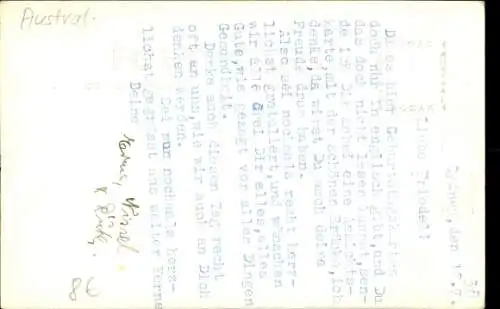 Austral.
Sydney, den 12.7.38
Liebe Friedel!
Da es hier Geburtstagskarten
doch nur in englisch gibt, und Du
das doch nicht lesen kannst, sen-
de ich Dir dabei eine Ansichts-
karte, mit der schönen Brücke, ich
denke, da wirst Du auch deine
Freude dran haben.
Also sei nochmals recht herz-
lichst gratuliert, und wünschen
wir alle drei Dir alles, alles
Gute, wie gesagt vor allen Dingen
Gesundheit.
Denke auch diesen Tag recht
oft an uns, wie wir auch an Dich
denken werden.
Sei nun nochmals herz-
lichst gegrüsst aus weiter Ferne
Deine
8€